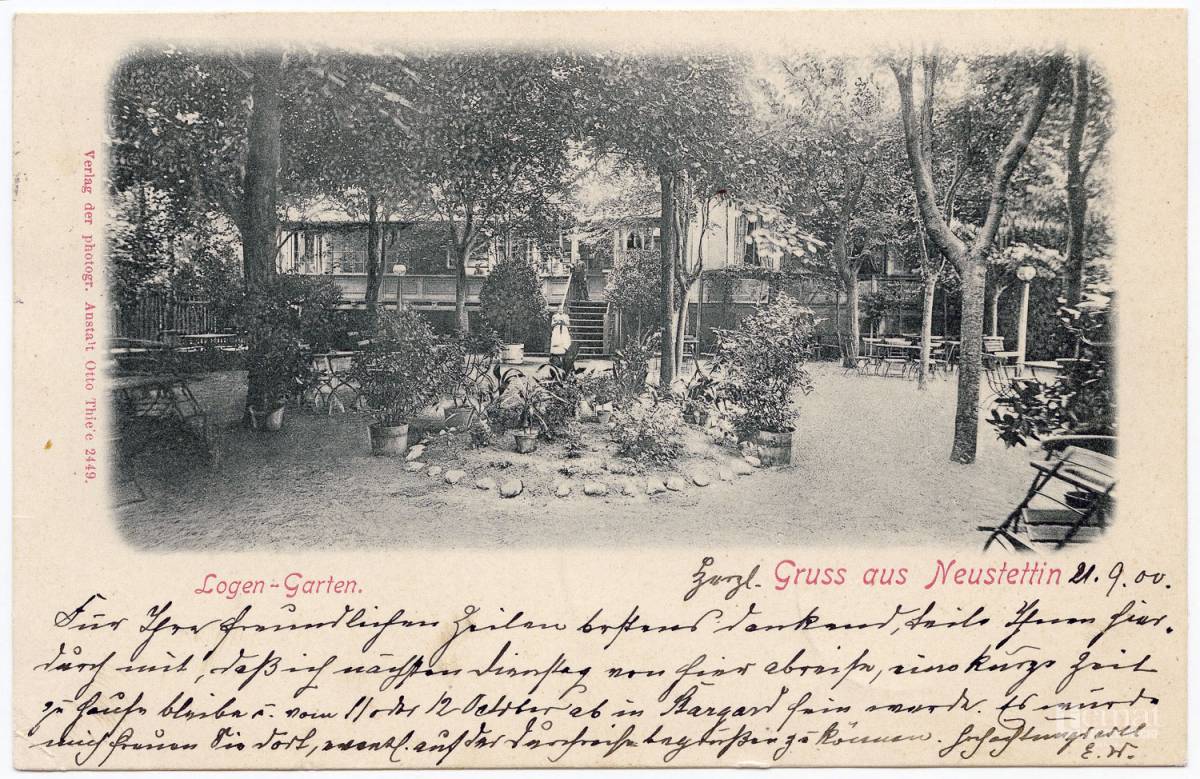 Verlag der photogr. Anstalt Otto Thie'e 2449.
Logen-Garten.
Herzl. Gruss aus Neustettin 21.9.00.
Für Ihre freundlichen Zeilen bestens dankend, teile Ihnen hier-
durch mit, daß ich nächsten Dienstag von hier abreise, eine kurze Zeit
zu Hause bleibe u. vom 11 oder 12 October ab in Stargard sein werde. Es würde
mich freuen Sie dort, eventl. auf der Durchreise begrüßen zu können. Hochachtungsvoll
E. W.